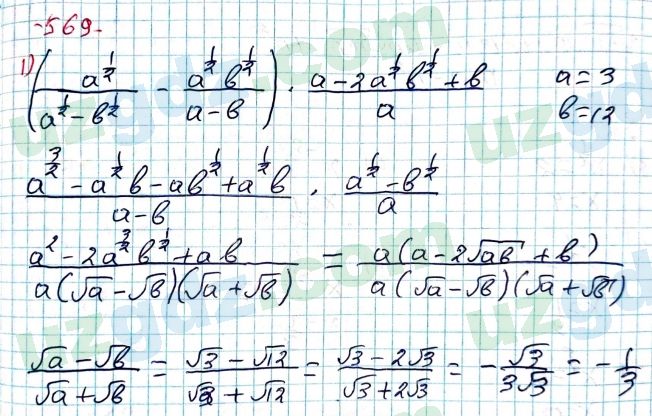 -569-
1) (a^(1/2)/(a^(1/2) - b^(1/2)) - a^(1/2)b^(1/2)/(a - b)) · (a - 2a^(1/2)b^(1/2) + b)/a   a = 3
b = 12
(a^(3/2) - a^(1/2)b - ab^(1/2) + a^(1/2)b)/(a - b) · (a^(1/2) - b^(1/2))/a
(a^2 - 2a^(3/2)b^(1/2) + ab)/(a(√a - √b)(√a + √b)) = a(a - 2√ab + b)/(a(√a - √b)(√a + √b))
(√a - √b)/(√a + √b) = (√3 - √12)/(√3 + √12) = (√3 - 2√3)/(√3 + 2√3) = -√3/(3√3) = -1/3
uzgdz.com